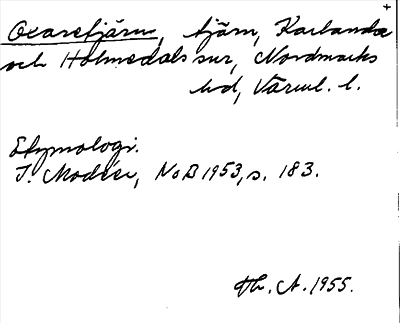 Oxaretjärn, tjärn, Karlanda
och Holmedals snr, Nordmarks
hd, Värml. l.
Etymologi.
I. Modéer, NoB 1953, s. 183.
Th. A. 1955.